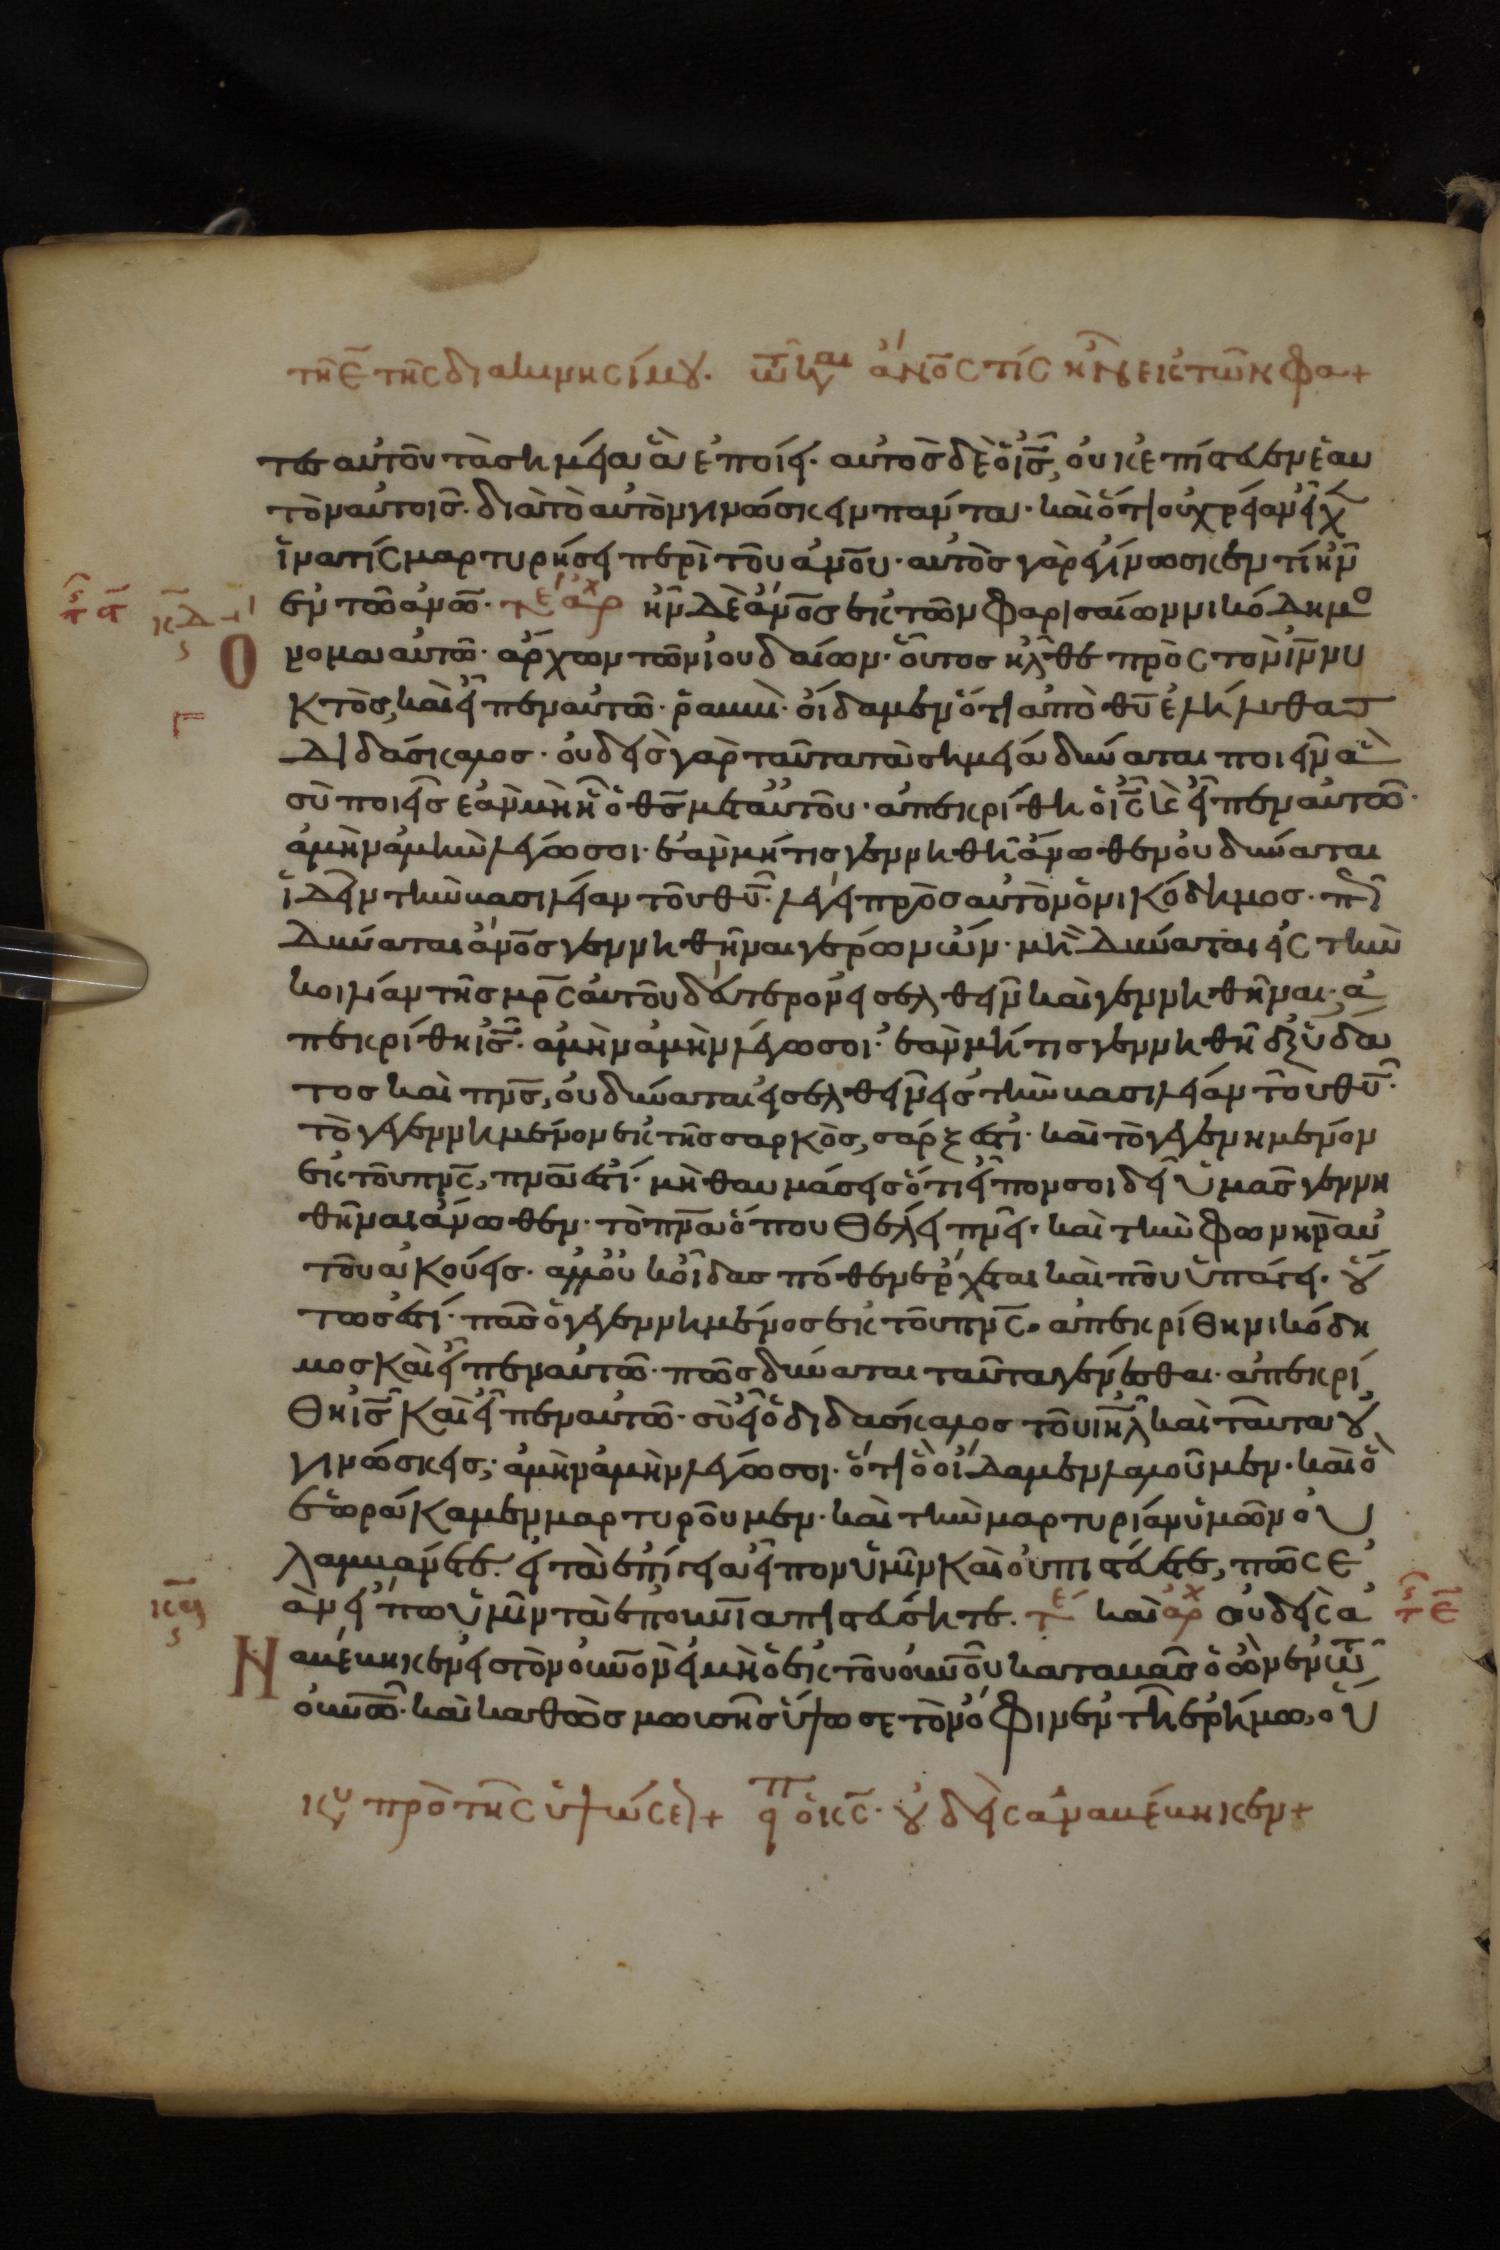 τῆ ε̄ τῆς διακινησίμου. τῶ κυ αι ἀνο̅ς τίς ἦν ἐκ τῶν φα+
τες αὐτοῦ τὰ σημεῖα ἃ ἐποίει· αὐτὸς δὲ ὁ ἰ̅ς̅, οὐκ ἐπίστευεν ἑαυ
τὸν αὐτοῖς· διὰ τὸ αὐτὸν γινώσκειν πάντα· καὶ ὅτι οὐ χρείαν εἶχ
ἵνα τίς μαρτυρήσει περὶ τοῦ ἀν̅ου̅· αὐτὸς γὰρ ἐγίνωσκεν τί ἦν
ἐν τῶ ἀν̅ω̅· τε αρχ ἦν δὲ ἀν̅ο̅ς ἐκ τῶν φαρισαίων νικόδημο
ὄνομα αὐτῶ· ἄρχων τῶν ἰουδαίων· οὗτος ἦλθε πρὸς τὸν ἰ̅ν̅ νυ
κτὸς, καὶ εἶπεν αὐτῶ· ῥαββὶ· οἴδαμεν ὅτι ἀπὸ θ̅υ̅ ἐλήλυθας
διδάσκαλος· οὐδεὶς γὰρ ταῦτα τὰ σημεῖα δύναται ποιεῖν ἃ
σὺ ποιεῖς ἐὰν μὴ ἦ ὁ θ̅ς̅ μετ' αὐτοῦ· ἀπεκρίθη ὁ ἰ̅ς̅ κὲ εἶπεν αὐτῶ·
ἀμὴν ἀμὴν λέγω σοι· ἐὰν μή τις γεννηθῆ ἄνωθεν οὐ δύναται
ἰδεῖν τὴν βασιλείαν τοῦ θ̅υ̅· λέγει πρὸς αὐτὸν ὁ νικόδημος· πῶ
δύναται ἀν̅ο̅ς γεννηθῆναι γέρων ὤν· μὴ δύναται εἰς τὴν
κοιλίαν τῆς μ̅ρ̅ς̅ αὐτοῦ δεύτερον εἰσελθεῖν καὶ γεννηθῆναι· ἀ
πεκρίθη ἰ̅ς̅· ἀμὴν ἀμὴν λέγω σοι· ἐὰν μή τις γεννηθῆ ἐξ ὕδα
τος καὶ π̅ν̅ς̅, οὐ δύναται εἰσελθεῖν εἰς τὴν βασιλείαν τοῦ θ̅υ̅·
τὸ γεγεννημένον ἐκ τῆς σαρκὸς, σάρξ ἐστι· καὶ τὸ γεγενημένον
ἐκ τοῦ π̅ν̅ς̅, π̅ν̅α̅ ἐστί· μὴ θαυμάσεις ὅτι εἶπον σοι δεῖ ὑμᾶς γεννη
θῆναι ἄνωθεν· τὸ π̅ν̅α̅ ὅπου θέλει πνεῖ· καὶ τὴν φωνὴν αὐ
τοῦ ἀκούεις· ἀλλ' οὐκ οἶδας πόθεν ἔρχεται καὶ ποῦ ὑπάγει· οὕ
τως ἐστί· πᾶς ὁ γεγεννημένος ἐκ τοῦ π̅ν̅ς̅. ἀπεκρίθη νικόδη
μος καὶ εἶπεν αὐτῶ· πῶς δύναται ταῦτα γενέσθαι· ἀπεκρί
θη ἰ̅ς̅ καὶ εἶπεν αὐτῶ· σὺ εἶ ὁ διδάσκαλος τοῦ ἰ̅η̅λ̅ καὶ ταῦτα οὐ
γινώσκεις; ἀμὴν ἀμὴν λέγω σοι· ὅτι ὃ οἴδαμεν λαλοῦμεν· καὶ ὃ
ἑωράκαμεν μαρτυροῦμεν· καὶ τὴν μαρτυρίαν ἡμῶν οὐ
λαμβάνετε. εἰ τὰ ἐπίγεια εἶπον ὑμῖν καὶ οὐ πιστεύετε, πῶς ἐ
ὰν εἴπω ὑμῖν τὰ ἐπουνια πιστεύσητε. τε καὶ αρχ οὐδεὶς ἀ
Ναβέβηκεν εἰς τὸν οὐνο̅ν εἰ μὴ ὁ ἐκ τοῦ οὐν̅ου καταβὰς ὁ ὢν ἐν τῶ
οὐν̅ῶ· καὶ καθὼς μωυσῆς ὕψωσε τὸν ὄφιν ἐν τῆ ἐρήμω, οὕ
κυ πρὸ τῆς ὑψώσε+ ειπ ὁ κ̅ς̅· οὐδεὶς ἀναβέβηκεν+